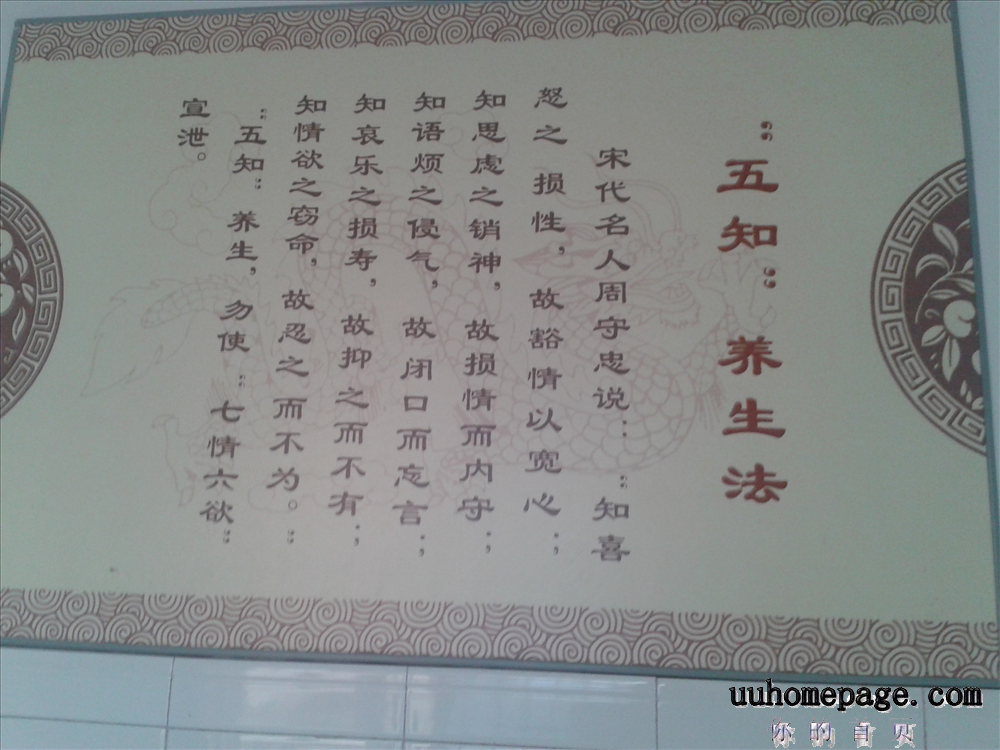 “五知”养生法
宋代名人周守忠说：“知喜
怒之损性，故豁情以宽心；
知思虑之销神，故损情而内守；
知语烦之侵气，故闭口而忘言；
知哀乐之损寿，故抑之而不有；
知情欲之窃命，故忍之而不为。”
“五知”养生，勿使“七情六欲”
宣泄。
uuhomepage.com
你的首页